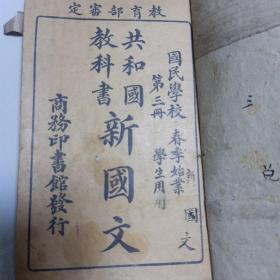 教育部審定
國民學校 春季始業
第三冊 學生用
共和國
教科書
新國文
商務印書館發行
新國文
三